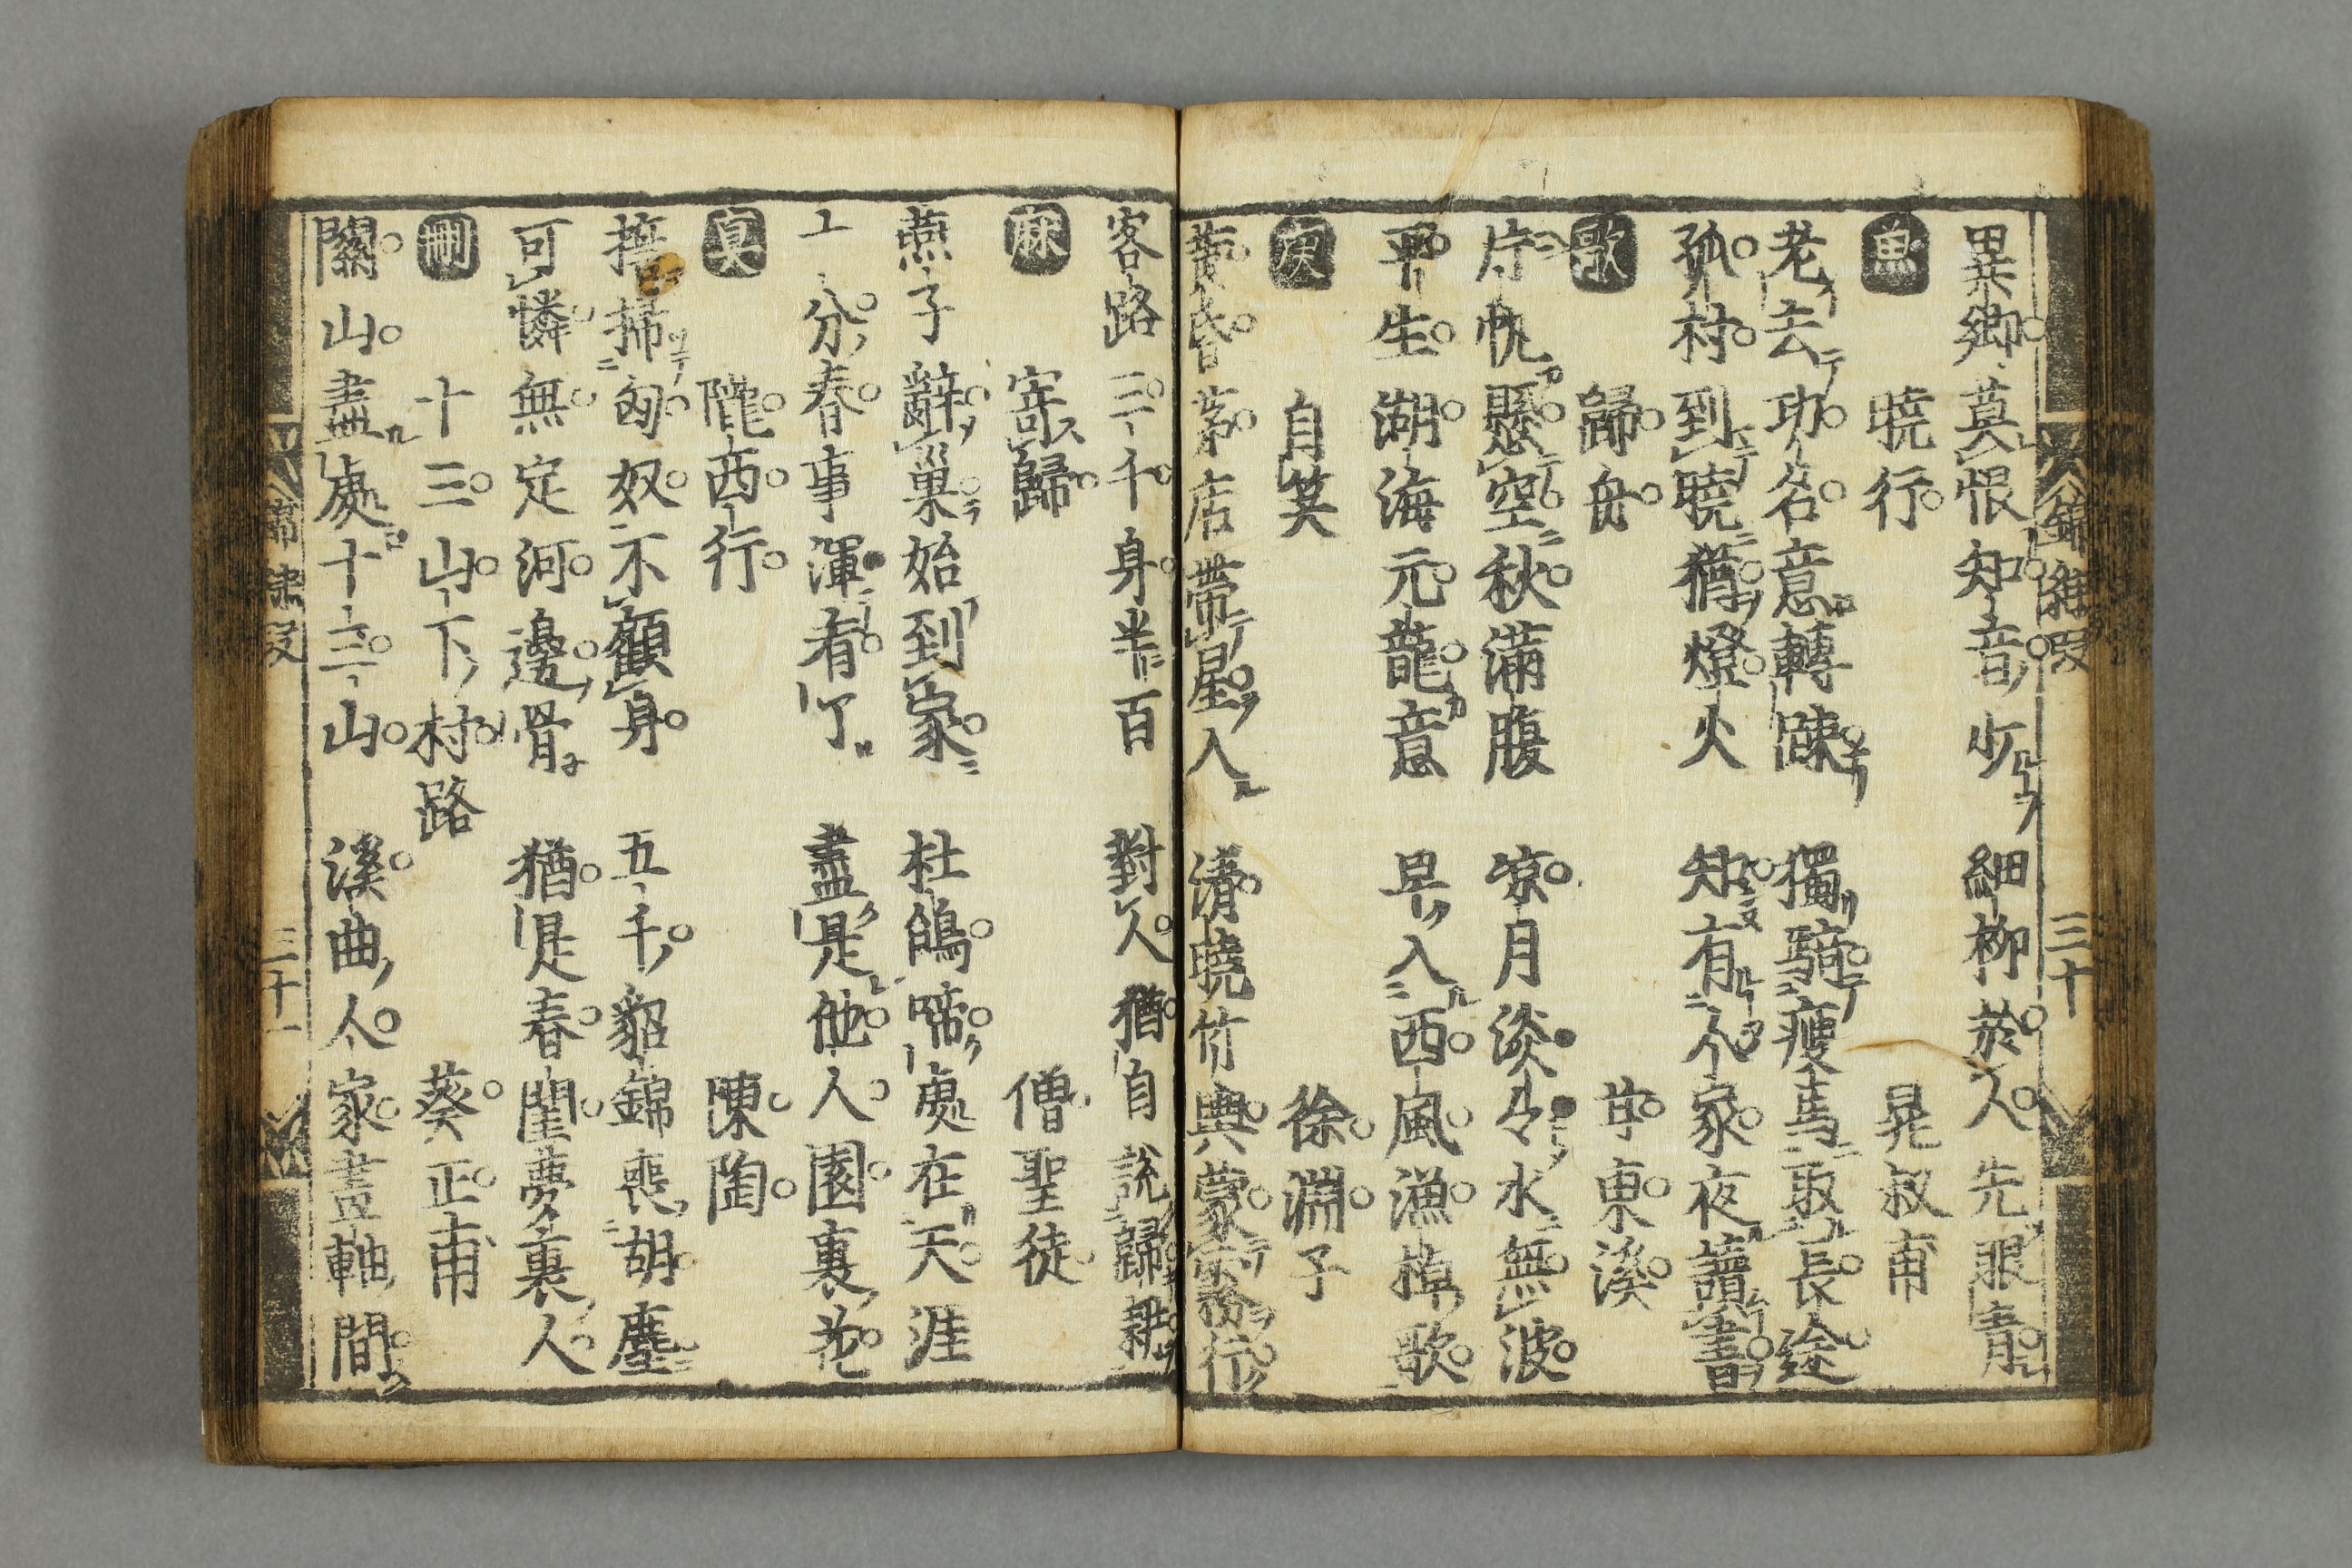 異郷莫恨知音少 細柳於人先眼青
魚 暁行 晁叔甫
老去功名意轉踈 獨騎瘦馬取長途
孤村到暁猶燈火 知有人家夜讀書
歌 歸舟 甘東溪
片帆懸空秋滿腹 凉月淡々水無波
平生湖海元龍意 早入西風漁棹歌
庚 自笑 徐淵子
黄昏茅店帶星入 清暁竹輿蒙霧行
三十
客路三千身半百 對人猶自說歸耕
麻 寄歸 僧聖徒
燕子辭巢始到家 杜鵑啼處在天涯
十分春事渾看了 盡是他人園裏花
真 隴西行 陳陶
掃匈奴不顧身 五千貂錦喪胡塵
可憐無定河邊骨 猶是春閨夢裏人
刪 十三山下村路 葵正甫
關山盡處十三山 溪曲人家畫軸間
三十一